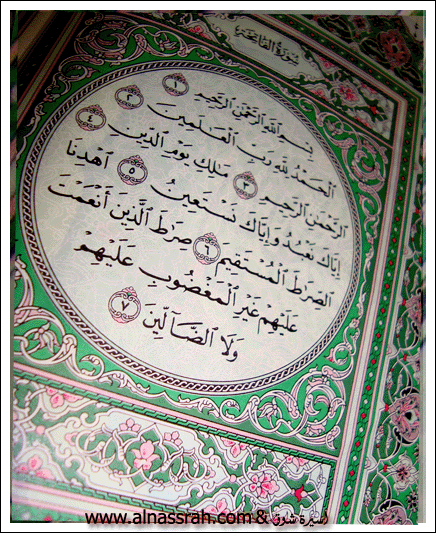 سُورَةُ الفَاتِحَةِ
بِسْمِ ٱللَّهِ ٱلرَّحْمَٰنِ ٱلرَّحِيمِ ١
ٱلْحَمْدُ لِلَّهِ رَبِّ ٱلْعَٰلَمِينَ ٢
ٱلرَّحْمَٰنِ ٱلرَّحِيمِ ٣ مَٰلِكِ يَوْمِ ٱلدِّينِ ٤
إِيَّاكَ نَعْبُدُ وَإِيَّاكَ نَسْتَعِينُ ٥ ٱهْدِنَا
ٱلصِّرَٰطَ ٱلْمُسْتَقِيمَ ٦ صِرَٰطَ ٱلَّذِينَ أَنْعَمْتَ
عَلَيْهِمْ غَيْرِ ٱلْمَغْضُوبِ عَلَيْهِمْ
وَلَا ٱلضَّآلِّينَ ٧
www.alnassrah.com & اسيرة شوق